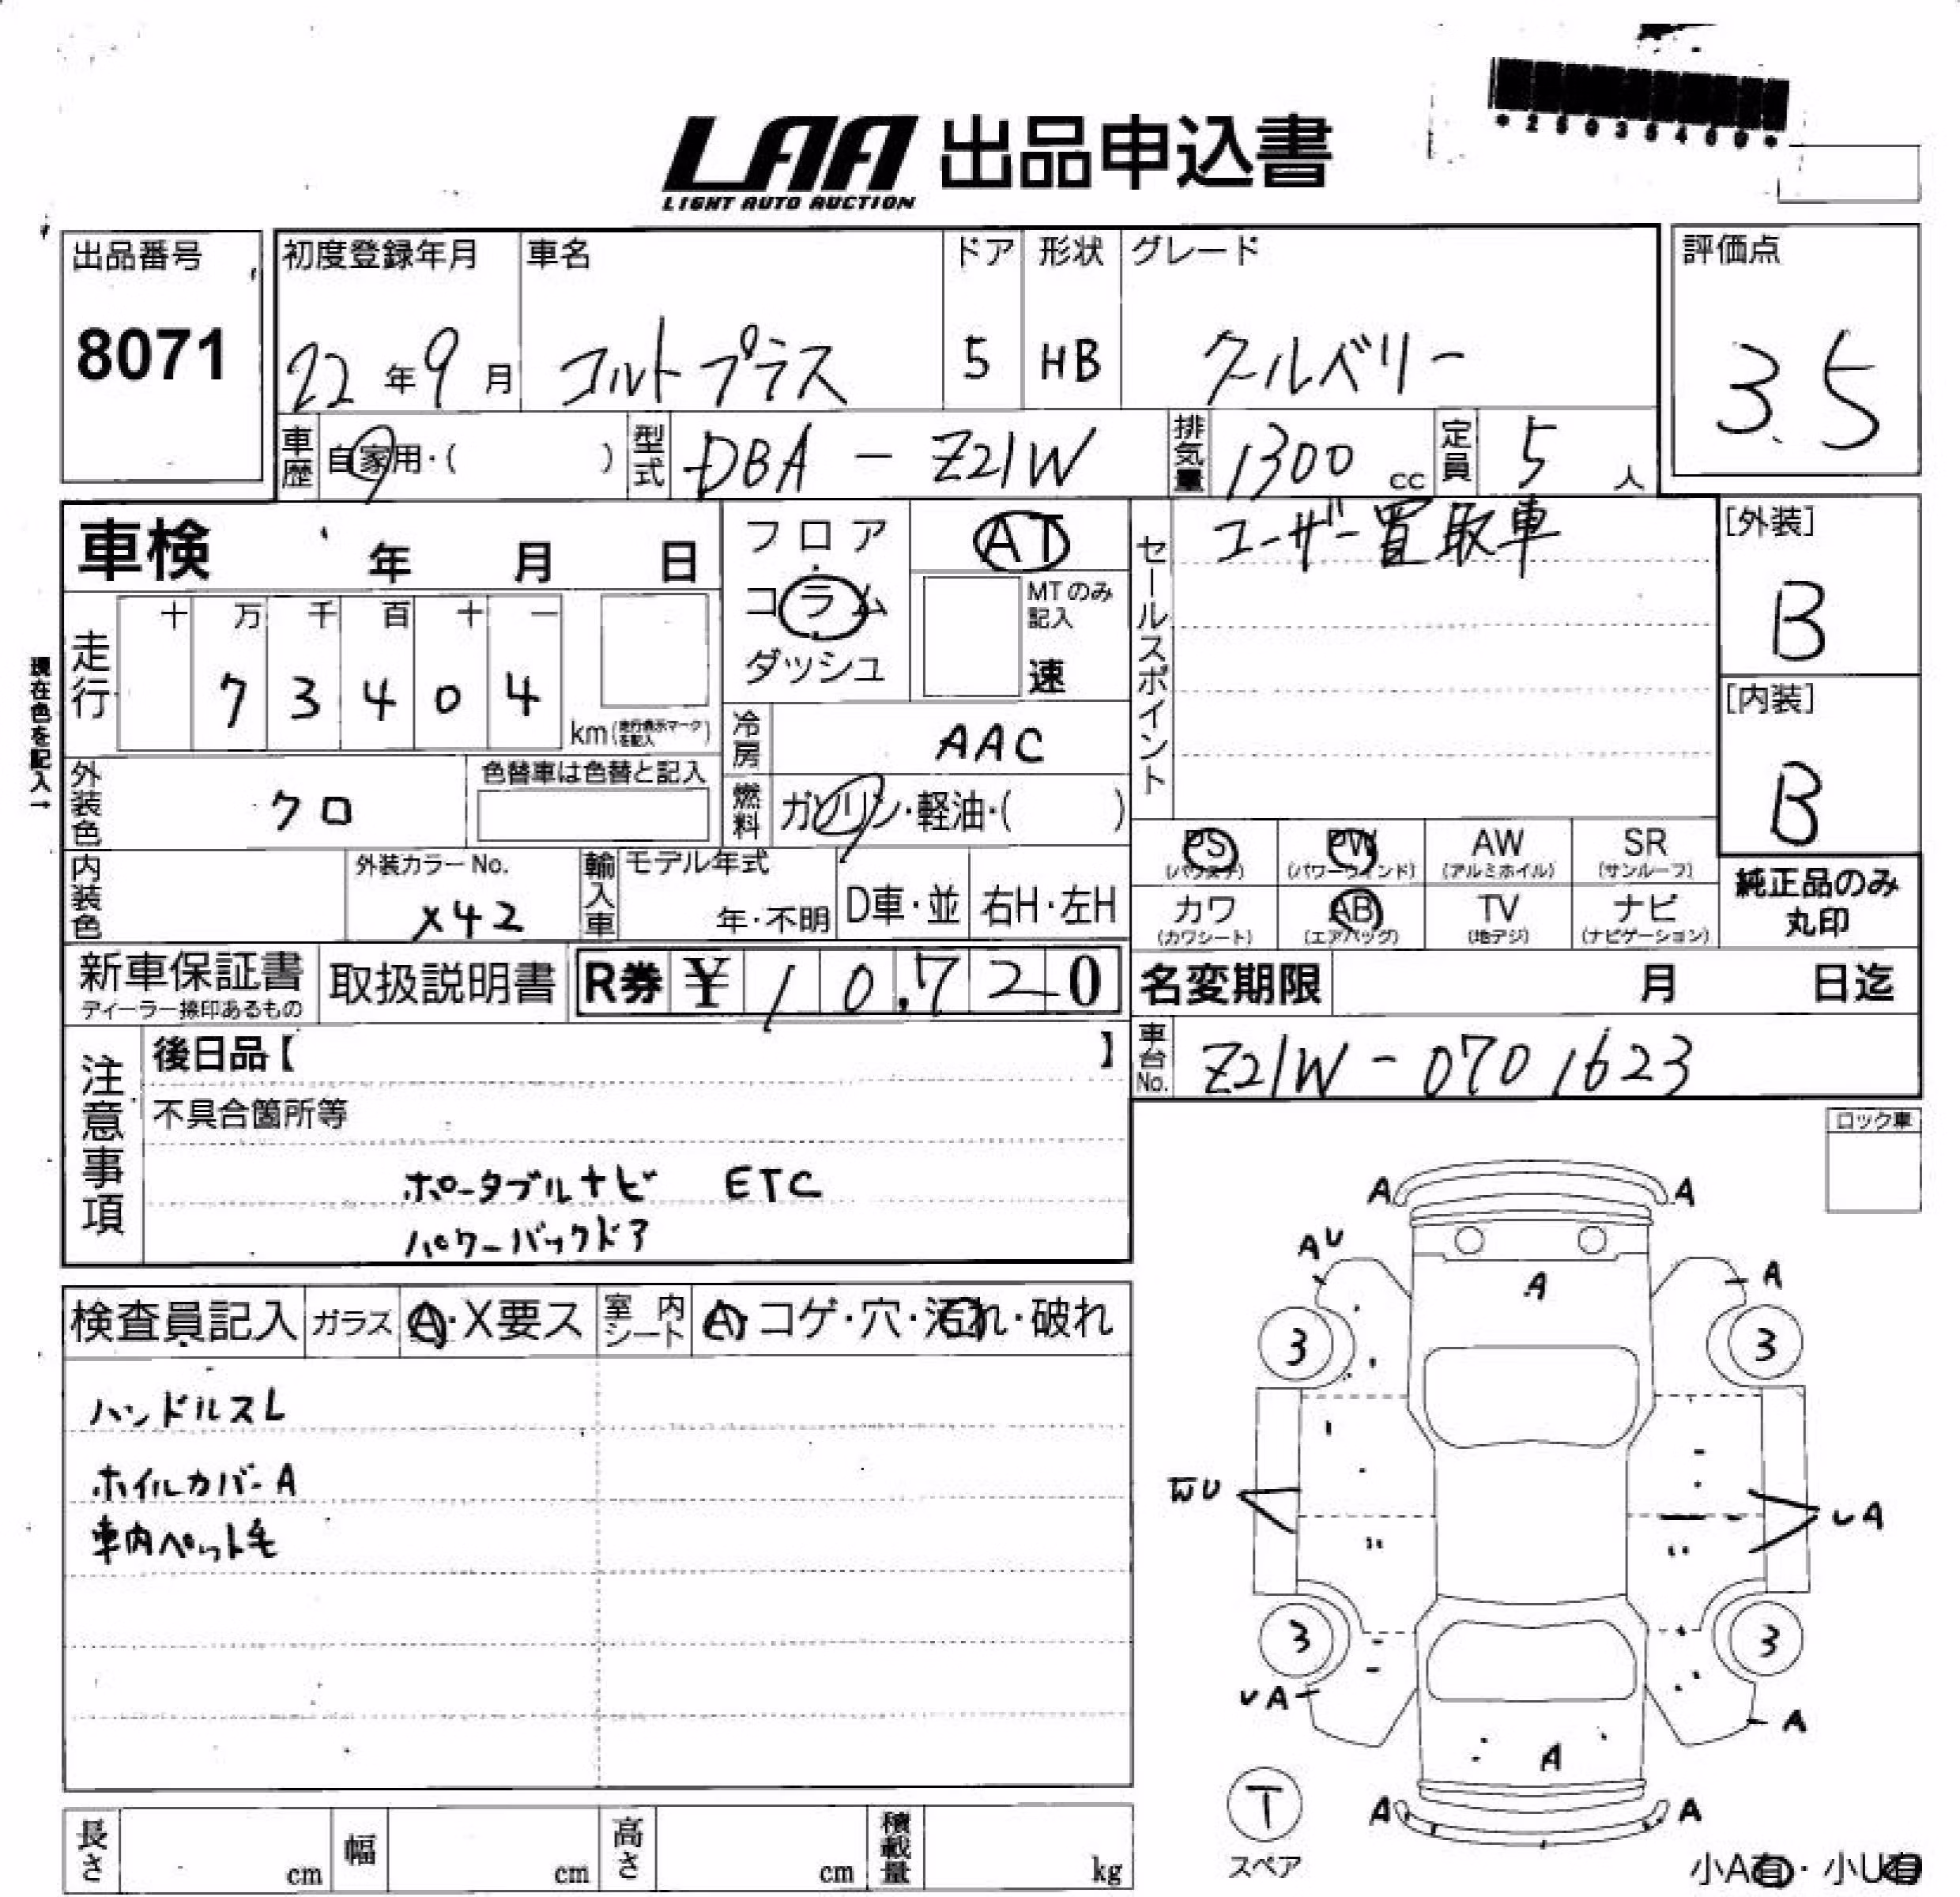 *25035460*
LAA 出品申込書
LIGHT AUTO AUCTION
出品番号 初度登録年月 車名 ドア 形状 グレード 評価点
8071 22年9月 コルトプラス 5 HB クールベリー 3.5
車歴 自家用・( ) 型式 DBA-Z21W 排気量 1300cc 定員 5人
車検 年 月 日 フロア AT セールスポイント ユーザー買取車 [外装]
B
コラム MTのみ記入
ダッシュ 速
走行 十 万 千 百 十 一
7 3 4 0 4
km(走行表示マークを記入)
現在色を記入→
[内装]
B
冷房 AAC
外装色 クロ 色替車は色替と記入 燃料 ガソリン・軽油・( )
PS PW AW SR
(パワステ) (パワーウインド) (アルミホイル) (サンルーフ)
内装色 外装カラーNo. 輸入車 モデル年式
X42 年・不明 D車・並 右H・左H
カワ AB TV ナビ 純正品のみ丸印
(カワシート) (エアバッグ) (地デジ) (ナビゲーション)
新車保証書 取扱説明書 R券 ¥10,720 名変期限 月 日迄
ディーラー捺印あるもの
注意事項 後日品【 】 車台No. Z21W-0701623
不具合箇所等
ポータブルナビ ETC
パワーバックドア
ロック車
検査員記入 ガラス A・X要ス 室内シート A・コゲ・穴・汚れ・破れ
ハンドルスレ
ホイルカバーA
車内ペット毛
A A
AU A A
3 3
WU UA
3 3
UA A A
A A
T
スペア
小A有・小U有
長さ cm 幅 cm 高さ cm 積載量 kg